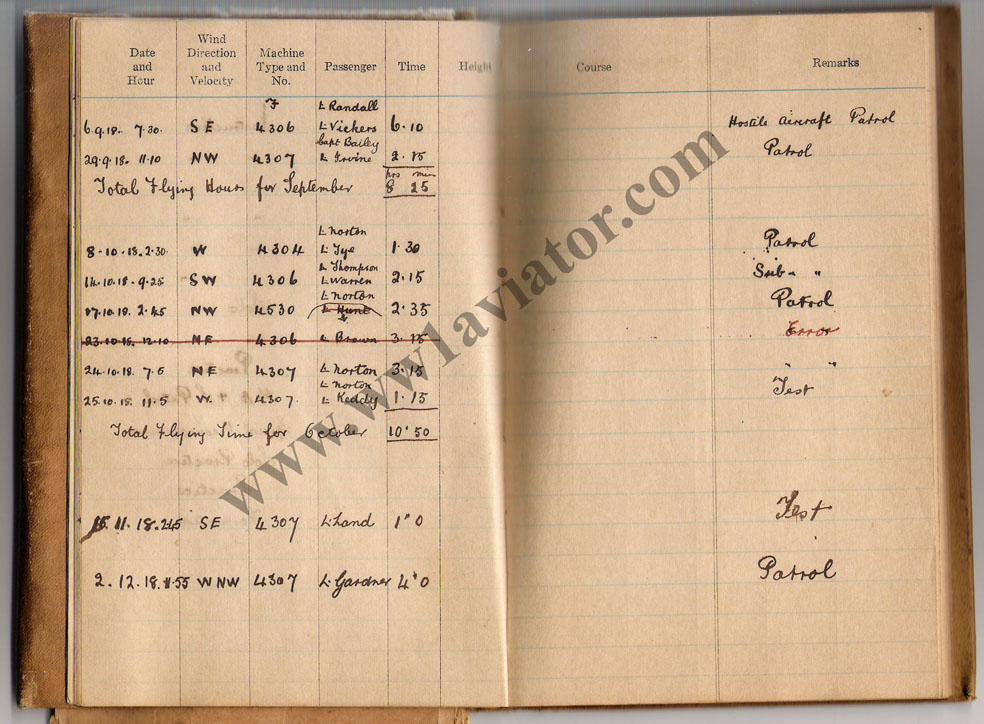 Date and Hour Wind Direction and Velocity Machine Type and No. Passenger Time Height Course Remarks
F Lt Randall
6.9.18. 7.30. SE 4306 Lt Vickers 6.10 Hostile Aircraft Patrol
Capt Bailey
29.9.18. 11.10 NW 4307 Lt Irvine 2.15 Patrol
hrs min
Total Flying Hours for September 8 25
Lt Norton
8.10.18. 2.30. W 4304 Lt Tye 1.30 Patrol
Lt Thompson
14.10.18. 9.25 SW 4306 Lt Warren 2.15 Sub- "
Lt Norton
17.10.18. 2.45 NW 4530 Lt Hunt 2.35 Patrol
23.10.18. 12.10 NE 4306 Lt Brown 3.15 Error
24.10.18. 7.5 NE 4307 Lt Norton 3.15 " "
Lt Norton
25.10.18. 11.5 W. 4307. Lt Keddy 1.15 Test
Total Flying Time for October 10.50
15.11.18. 2.45 SE 4307 Lt Land 1.0 Test
2.12.18. 11.55 WNW 4307 Lt Gardner 4.0 Patrol
www.ww1aviator.com